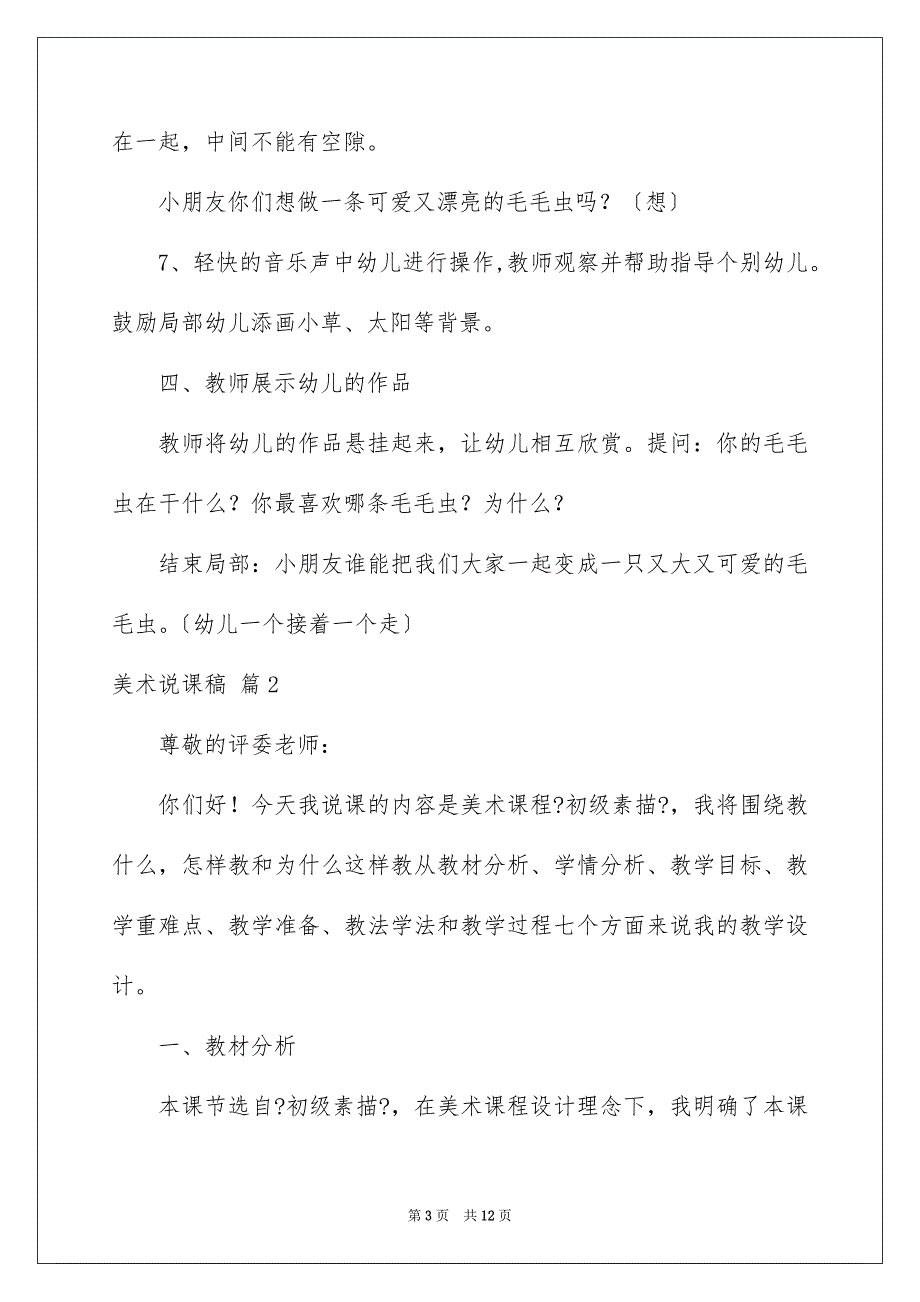 在一起，中间不能有空隙。
小朋友你们想做一条可爱又漂亮的毛毛虫吗？〔想〕
7、轻快的音乐声中幼儿进行操作,教师观察并帮助指导个别幼儿。
鼓励局部幼儿添画小草、太阳等背景。
四、教师展示幼儿的作品
教师将幼儿的作品悬挂起来，让幼儿相互欣赏。提问：你的毛毛
虫在干什么？你最喜欢哪条毛毛虫？为什么？
结束局部：小朋友谁能把我们大家一起变成一只又大又可爱的毛
毛虫。〔幼儿一个接着一个走〕
美术说课稿 篇2
尊敬的评委老师：
你们好！今天我说课的内容是美术课程?初级素描?，我将围绕教
什么，怎样教和为什么这样教从教材分析、学情分析、教学目标、教
学重难点、教学准备、教法学法和教学过程七个方面来说我的教学设
计。
一、教材分析
本课节选自?初级素描?，在美术课程设计理念下，我明确了本课
第 3 页 共 12 页